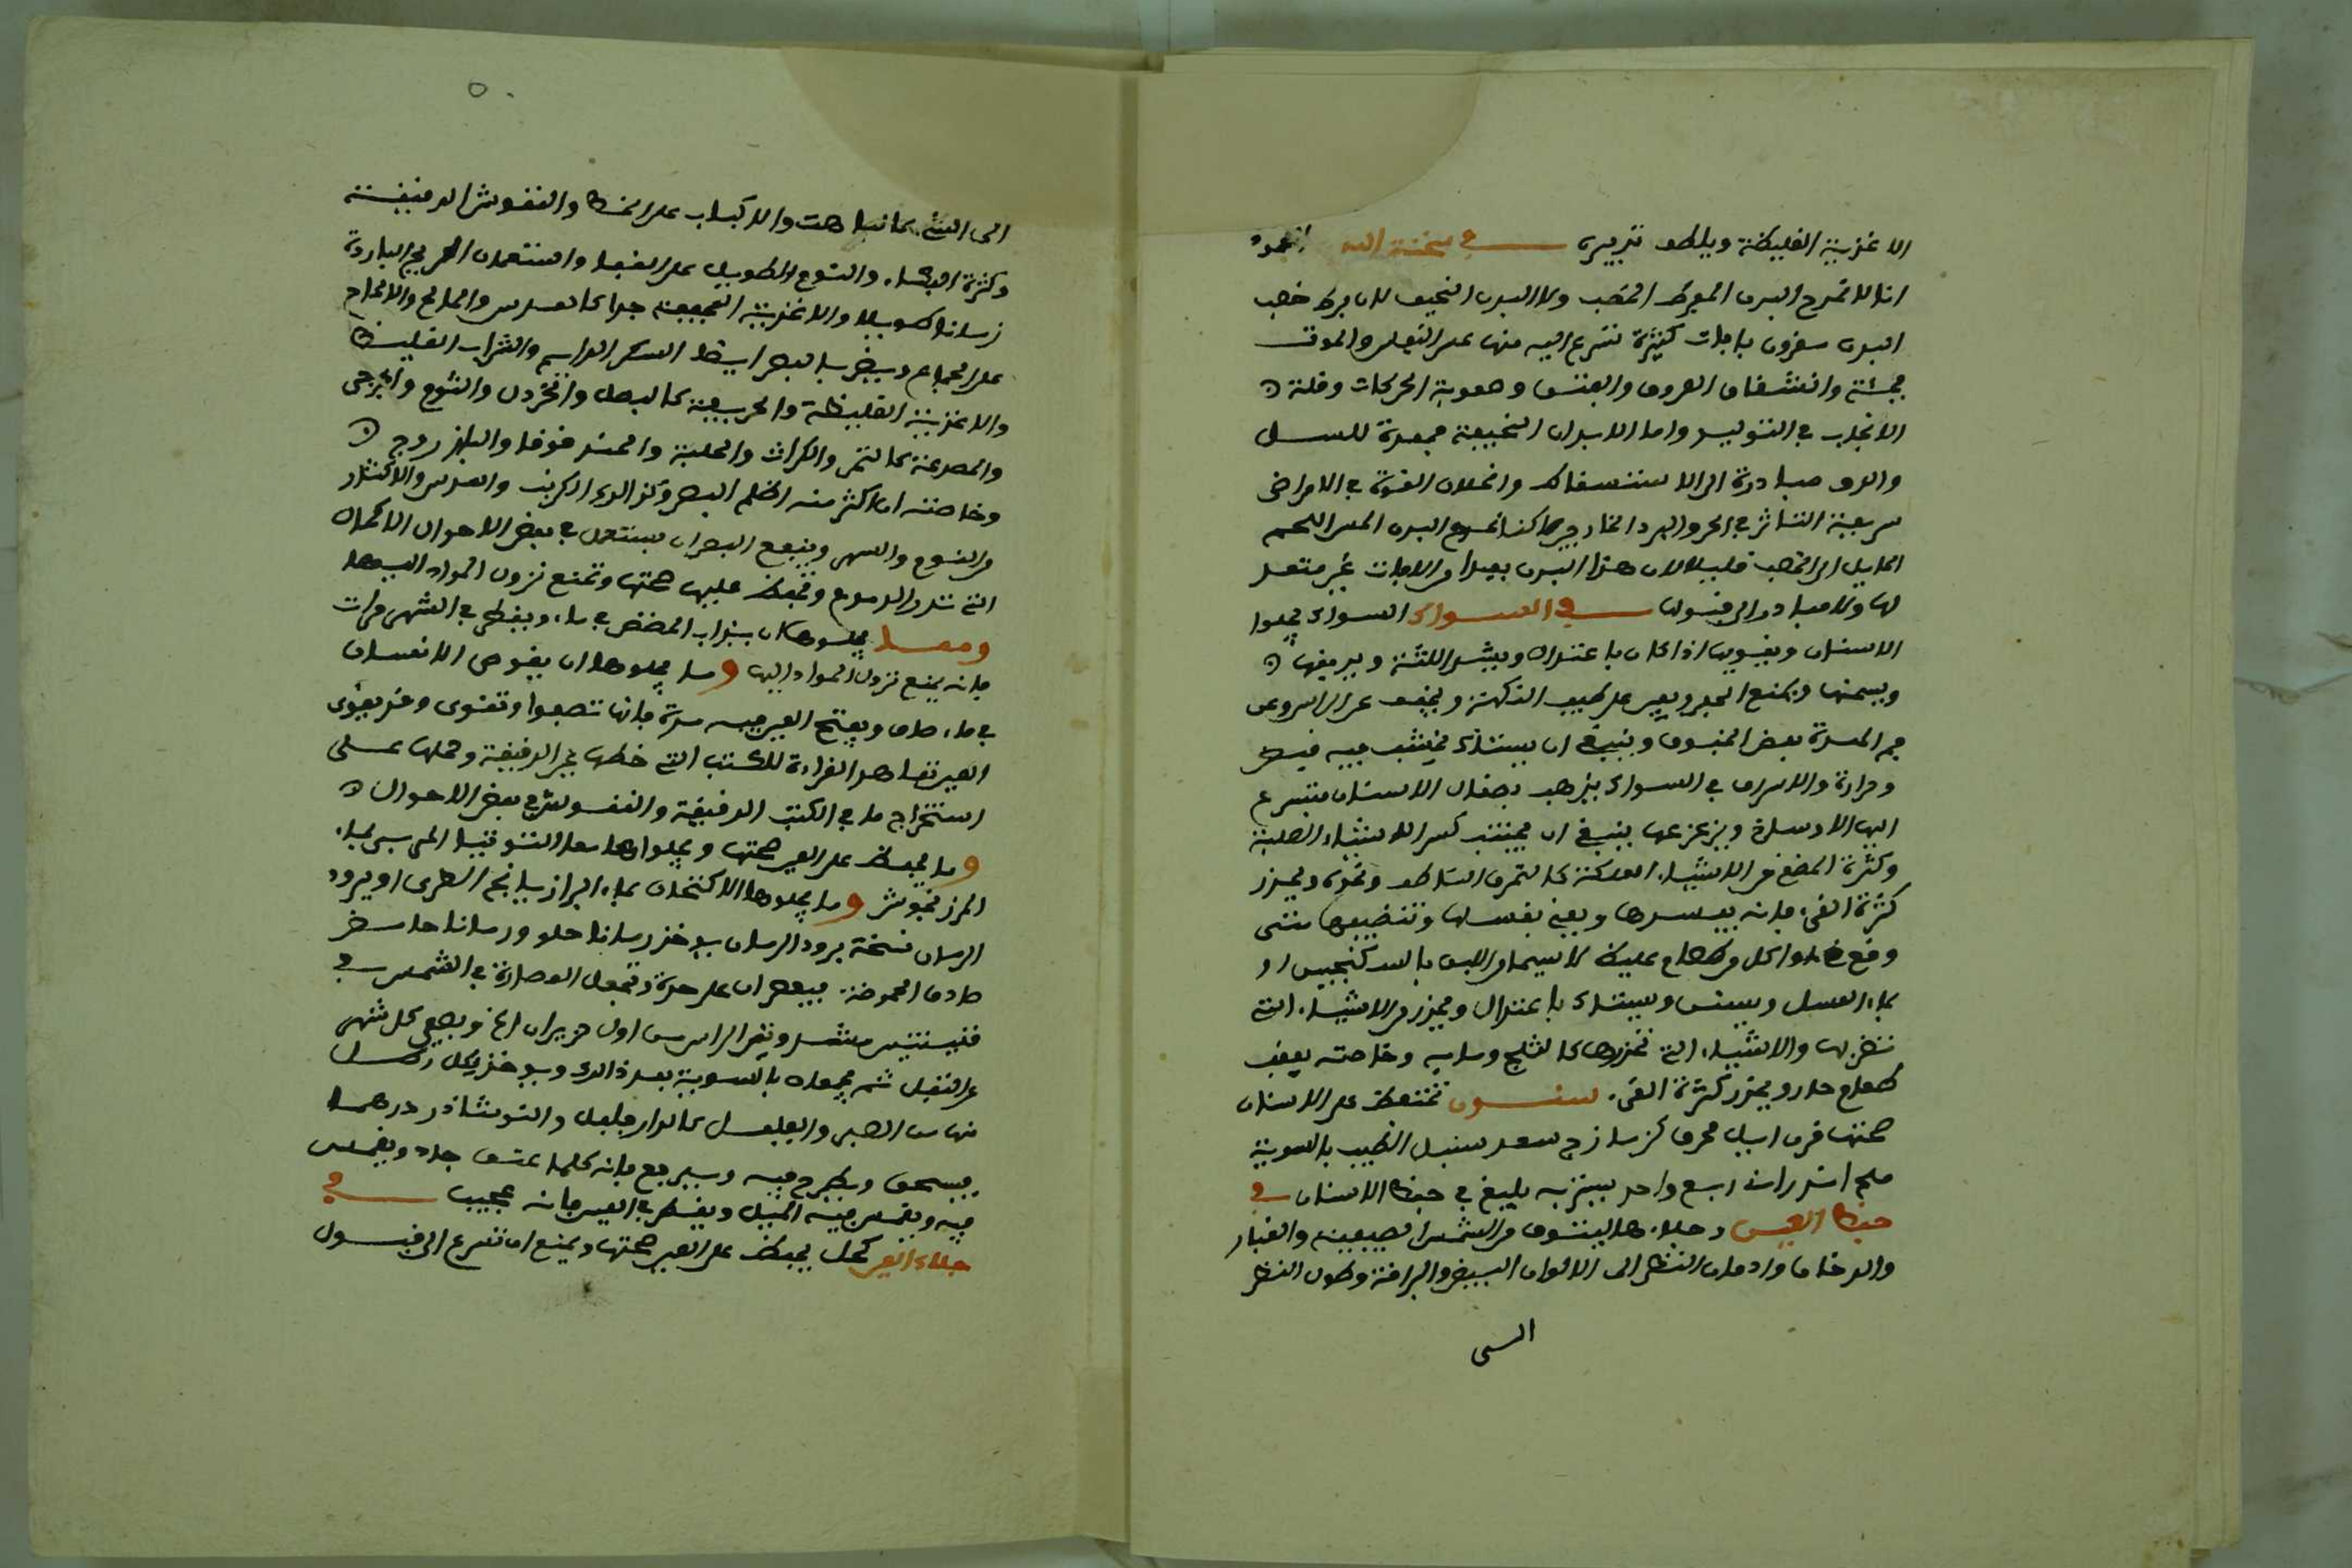 الاغذية الغليظة ويلطف تدبيره في سحنة البدن المحمود
انا لا نمدح البدن المفرط الخصب ولا البدن النحيف لان فرط خصب
البدن مقرون بافات كثيرة تسرع اليه منها على الفعل والموت
فجئة وانشقاق العروق والفتق وصعوبة الحركات وقلة
الانجاب في التوليد واما الابدان النحيفة فمعدة للسل
والدق مبادرة الى الاستسقاك وانحلال القوة في الامراض
سريعة التاثر في الحر والبرد الخارجين لكنا نمدح البدن الحسن اللحم
المايل الى الخصب قليلا لان هذا البدن بعيدا من الافات غير متعد
لها ولا مبادر الى قبولها في السواك السواك يجلوا
الاسنان ويقويها اذا كان باعتدال ويشد اللثة ويريقها
ويسمنها ويمنع الحفر ويعين على طيب النكهة ويخفف عن الراس وعن
فم المعدة بعض الخفوف وينبغي ان يستاك بخشب فيه قبض
ومرارة والاسراف في السواك يذهب بصقال الاسنان فتسرع
اليها الاوساخ ويزعزعها ينبغي ان يجتنب كسر الاشياء الصلبة
وكثرة المضغ من الاشياء العلكة كالتمر الساطف ونحوه ويحذر
كثرة القيء فانه يفسدها ويعنى بغسلها وتنظيفها متى
وقع قيء او اكل من طعام غليظ لا سيما من اللبن بالسكنجبين او
بماء العسل ويستن ويستاك باعتدال ويحذر من الاشياء التي
تضر بها والاشياء التي تخدرها كالثلج ومايه وخاصة بعقب
طعام حار ويحذر كثرة القيء سنون تحفظ على الاسنان
صحتها قرن ايل محرق كزمازج سعد سنبل الطيب بالسوية
ملح اندراني ربع واحد يستن به بليغ في حفظ الاسنان في
حفظ العين وجلاءها التوقي من الشمس الصيفية والغبار
والدخان وادمان النظر الى الالوان البيض والبراقة وطول النظر
الى
٥٠
الى الشيء كالباهت والاكباب على الخط والنقوش الدقيقة
وكثرة البكاء والنوم الطويل على القفا واستقبال الريح الباردة
زمانا طويلا والاغذية المجففة جدا كالعدس والمالح والالحاح
على الجماع ويضر بالبصر ايضا السكر الدايم والشراب الغليظ
والاغذية الغليظة والحريفة كالبصل والخردل والثوم والجرجير
والمصدعة كالتمر والكراث والحلبة والحندقوقا والباذروج
وخاصته ان اكثر منه اظلم البصر وكذلك الكرنب والعدس والاكثار
من النوم والسهر وينفع البصر ان يستعمل في بعض الاحوال الاكحال
التي تدر الدموع وتحفظ عليها صحتها وتمنع نزول المواد اليها
ومما يجلوها شياف المضض في ماء ويقطر في الشهر مرات
فانه يمنع نزول المواد اليها ومما يجلوها ان يغوص الانسان
في ماء صاف ويفتح العين فيه مدة فانها تصفوا وتقوى وقد يقوى
العين تعاهد القراءة للكتب التي خطها غير الدقيقة وحملها على
استخراج ما في الكتب الدقيقة والنقوش في بعض الاحوال
ومما يحفظ على العين صحتها ويجلوها التوتيا المربى بماء
المرزنجوش ومما يجلوها الاكتحال بماء الرازيانج الطري او برود
الرمان نسخة برود الرمان يوخذ رمانا حلو ورمانا حامض
صادق الحموضة فيعصران على حدة وتجعل العصارة في الشمس في
قنينتين مشدودتي الراس من اول حزيران الى اخره ويصفى كل شهر
عن الثفل ثم يجمعان بالسوية بعد ذلك ويوخذ لكل رطل
منهما من الصبر والفلفل والدارفلفل والنوشاذر درهما
فيسحق ويطرح فيه ويرفع فانه كلما عتق جاد ويغمس
فيه ويغمس فيه الميل ويقطر في العين فانه عجيب في
جلاء العين كحل يحفظ على العين صحتها ويمنع ان تسرع الى قبول